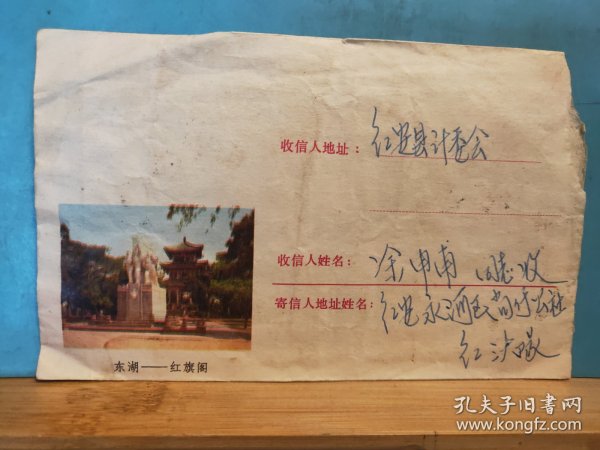 收信人地址：红安县计委会
收信人姓名：余申甫 同志收
寄信人地址姓名：红安永河区 公社
红沙
东湖——红旗阁
孔夫子旧书网
www.kongfz.com